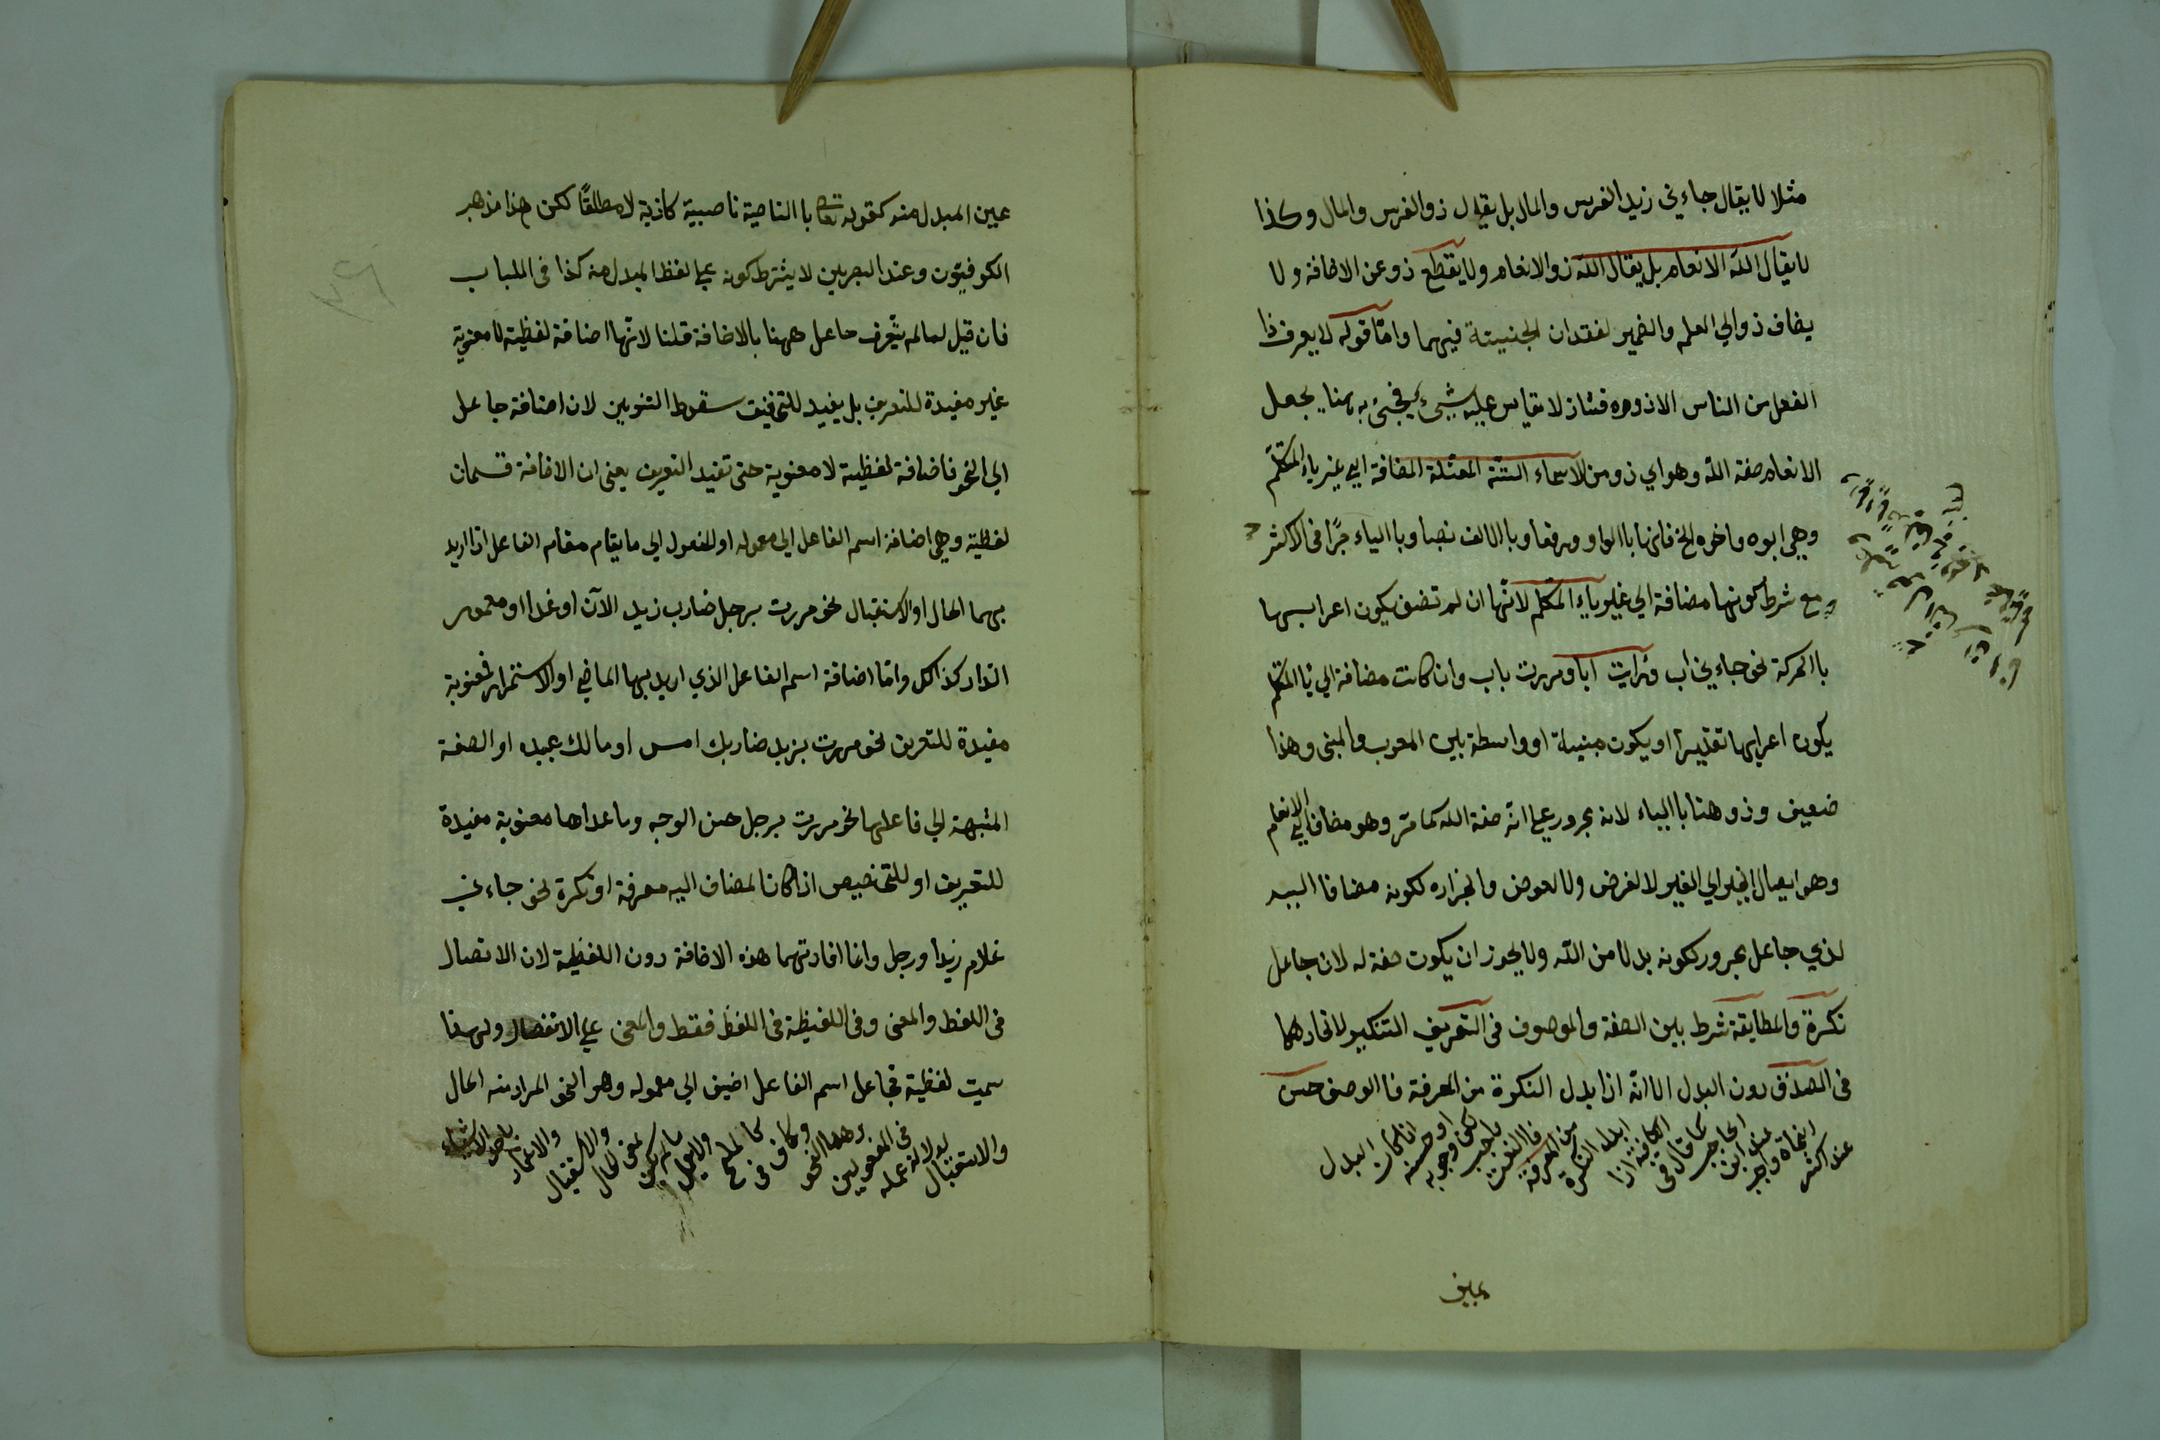 مثلا لا يقال جاءني زيد الفرس والمال بل يقال ذو الفرس والمال وكذا
لا يقال الله الانعام بل يقال الله ذو الانعام ولا يقطع ذو عن الاضافة ولا
يضاف ذو الي العلم والضمير لفقدان الجنسية فيهما واما قوله لا يعرف ذا
الفعل من الناس الا ذووه فشاذ لا يقاس عليه شيئ بجعل
الانعام صفة الله وهو اي ذو من الاسماء الستة المعتلة المضافة الي غير ياء المتكلم
وهي ابوه واخوه الخ فانها باالواو رفعا وباالالف نصبا وباالياء جرًا في الاكثر
ومع شرط كونها مضافة الي غير ياء المتكلم لانها ان لم تضف يكون اعرابها
باالحركة نحو جاءني اب ورايت ابا ومررت باب وان كانت مضافة الي يا المتكلم
يكون اعرابها تقديرا او يكون مبنية او واسطة بين المعرب والمبنى وهذا
ضعيف وذو هنا باالياء لانه مجرور علي انه صفة الله كما مر وهو مضاف الي الانعام
وهو ايصال الخير الي الغير لا لغرض ولا لعوض وانجراره لكونه مضافا اليه
لذي جاعل مجرور لكونه بدلا من الله ولا يجوز ان يكون صفة له لان جاعل
نكرة والمطابقة شرط بين الصفة والموصوف في التعريف التنكير لاتحادهما
في الصدق دون البدل الا انه اذا بدل النكرة من المعرفة فا الوصف حسن
عند اكثر النحاة وواجب عند ابن الحاجب كما قال في الكافية اذا ابدل النكرة من المعرفة فا النعت واجب لكن وجوبه او حسنه اذا كان البدل
عين
عين المبدل منه كقوله تعالى با الناصية ناصية كاذبة لا مطلقًا لكن هذا مذهب
الكوفيون وعند البصريين لا يشترط كونه علي لفظ المبدل منه كذا في اللباب
فان قيل لما لم يتعرف جاعل ههنا بالاضافة قلنا لانها اضافة لفظية لا معنوية
غير مفيدة للتعريف بل يفيد للتخفيف سقوط التنوين لان اضافة جاعل
الي النحو فاضافة لفظية لا معنوية حتى تفيد التعريف يعنى ان الاضافة قسمان
لفظية وهي اضافة اسم الفاعل الي معموله او المفعول الي ما يقام مقام الفاعل اذا اريد
بهما الحال او الاستقبال نحو مررت برجل ضارب زيد الآن او غدا او معمور
الدار كذلك واما اضافة اسم الفاعل الذي اريد بها الماضي او الاستمرار فمعنوية
مفيدة للتعريف نحو مررت بزيد ضاربك امس او مالك عبيده او الصفة
المشبهة الي فاعلها نحو مررت برجل حسن الوجه وما عداها معنوية مفيدة
للتعريف او للتخصيص اذا كان المضاف اليه معرفة او نكرة نحو جاءني
غلام زيد او رجل وانما افادتهما هذه الاضافة دون اللفظية لان الاتصال
في اللفظ والمعنى وفي اللفظية في اللفظ فقط والمعنى علي الانفصال ولهذا
سميت لفظية فجاعل اسم الفاعل اضيف الي معموله وهو النحو المراد منه الحال
والاستقبال لدلالة عمله في المفعولين وهما النحو وكاف في كالملح والعمل ما لم يكن بمعنى الحال والاستقبال والاعتماد